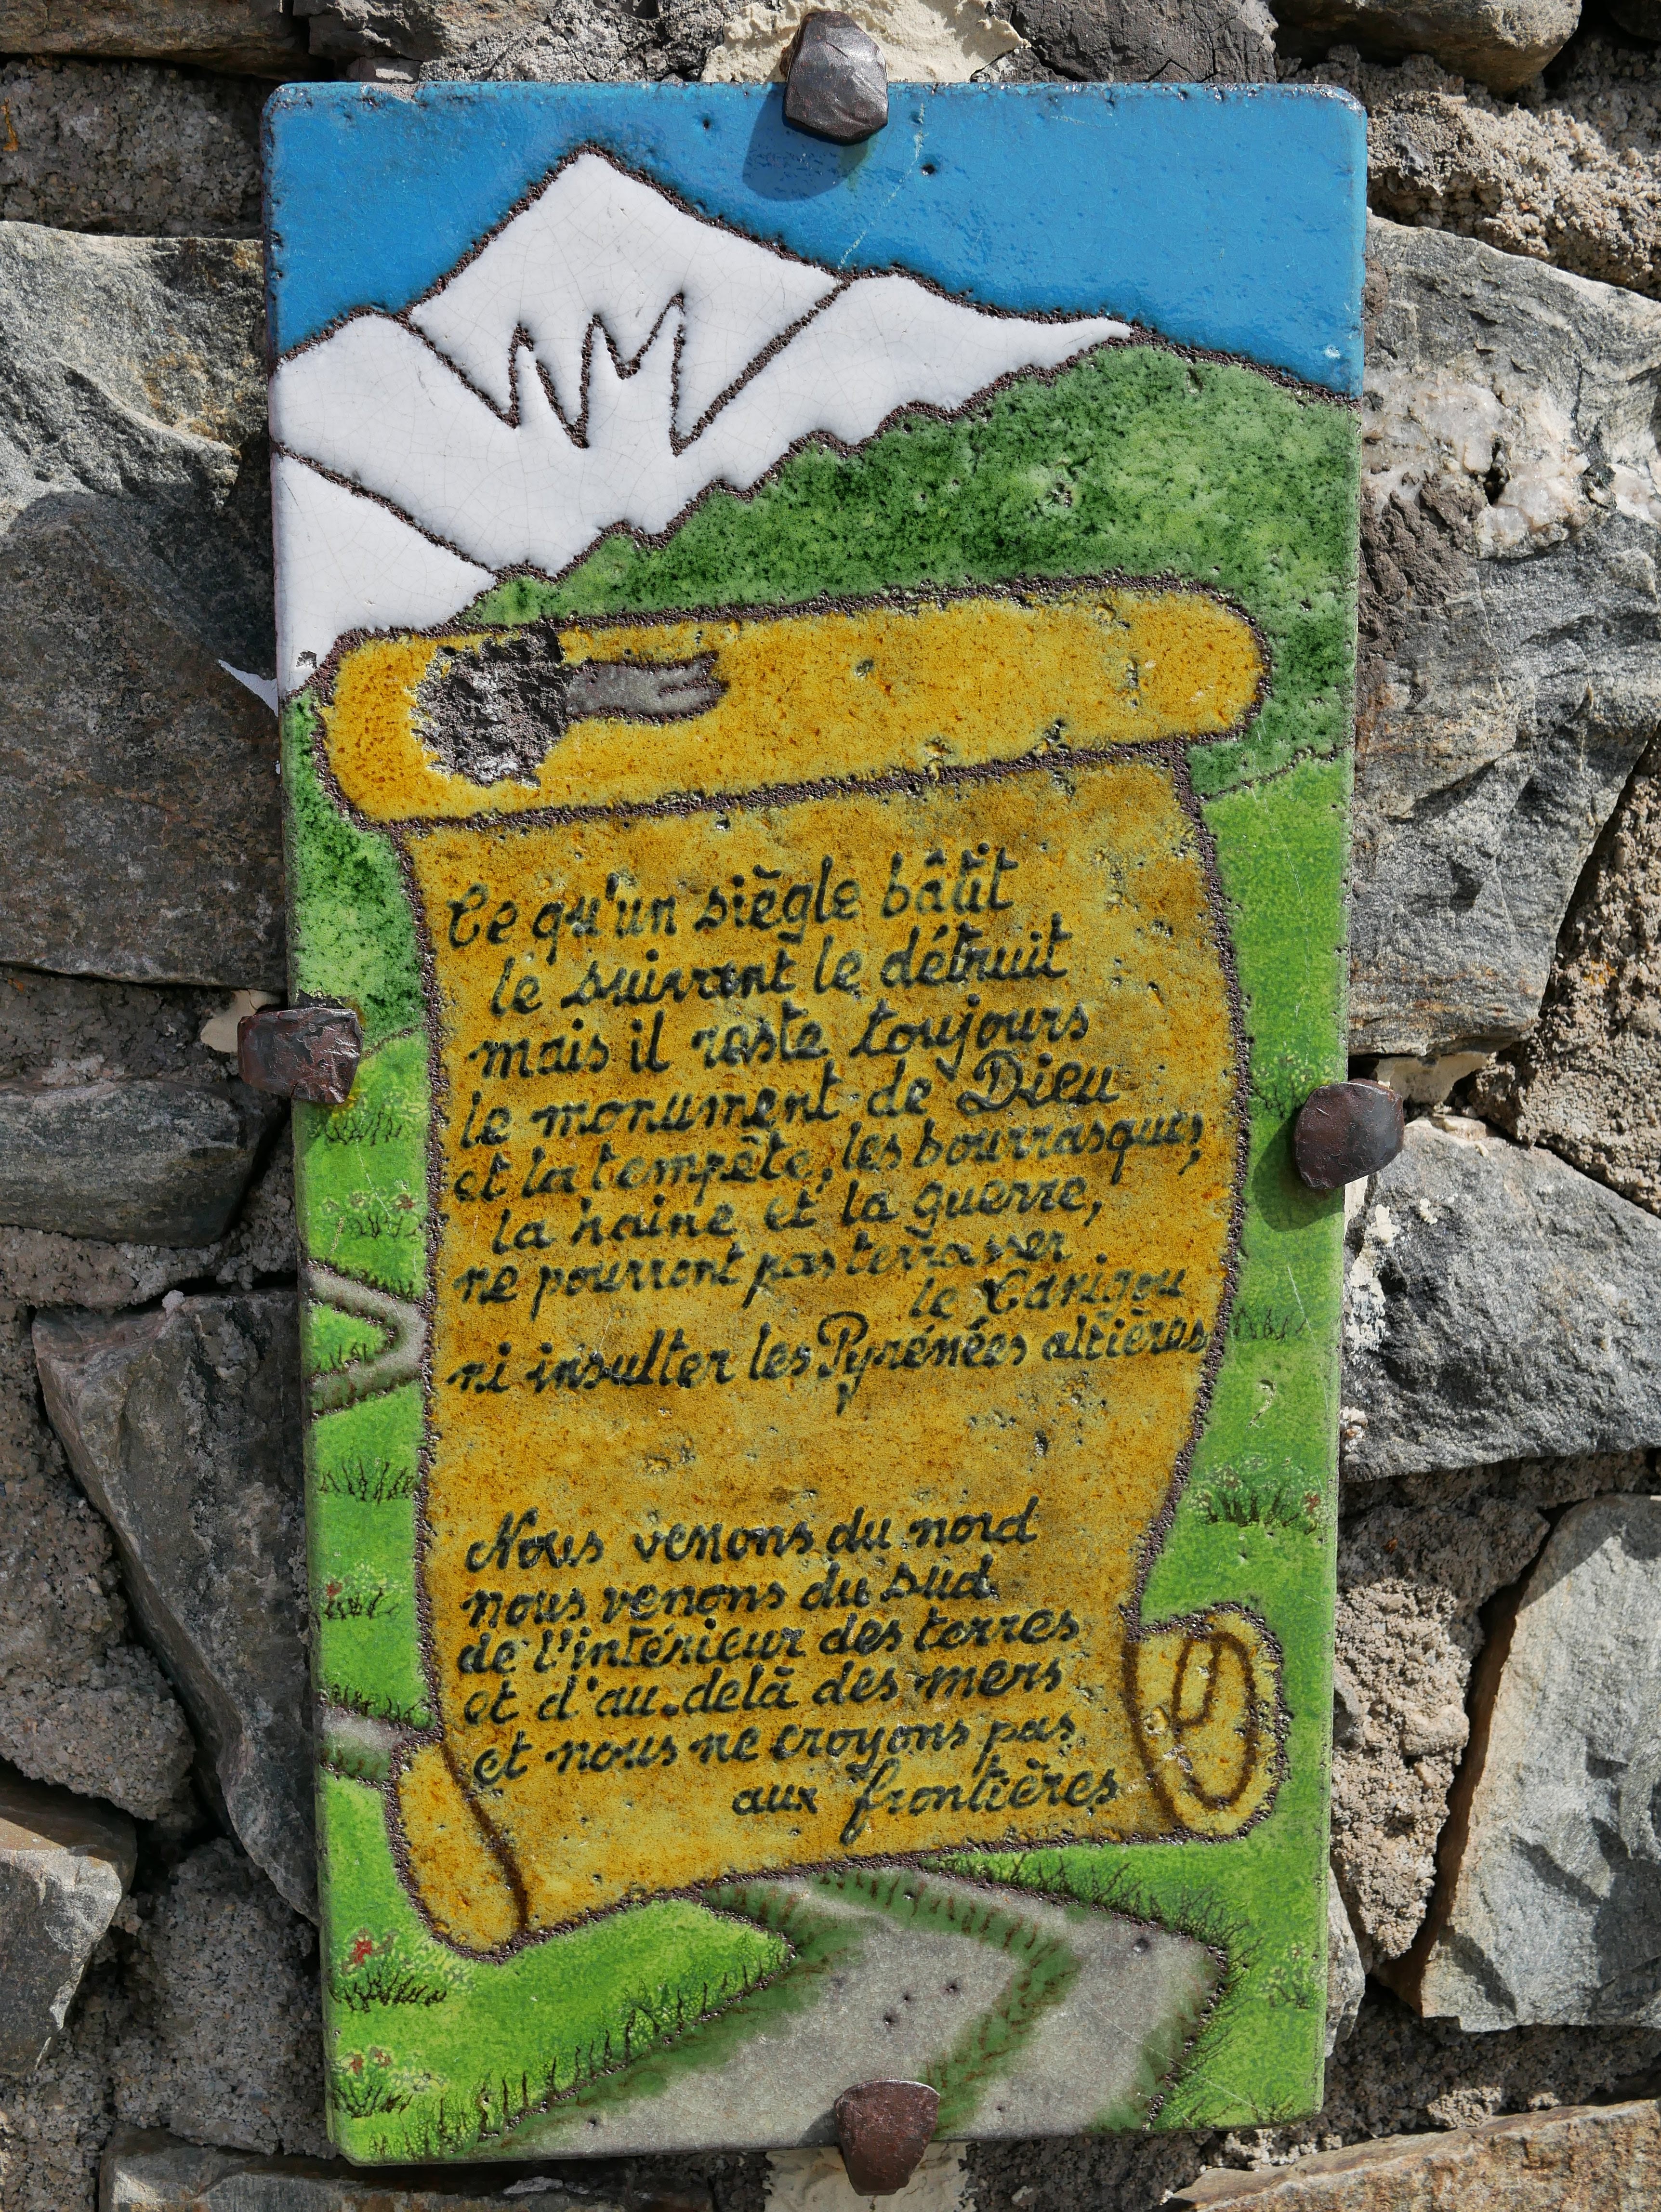 Ce qu'un siègle bâtit
le suivent le détruit
mais il reste toujours
le monument de Dieu
et la tempête, les bourrasques,
la haine et la guerre,
ne pourront pas terrasser
le Canigou
ni insulter les Pyrénées altières
Nous venons du nord
nous venons du sud
de l'intérieur des terres
et d'au.delà des mers
et nous ne croyons pas
aux frontières